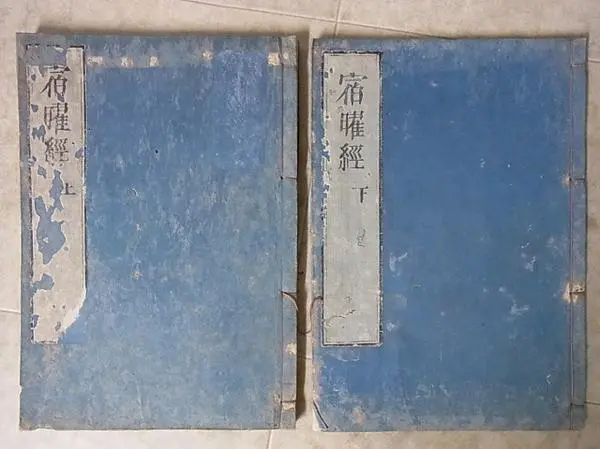 宿曜經 上
宿曜經 下